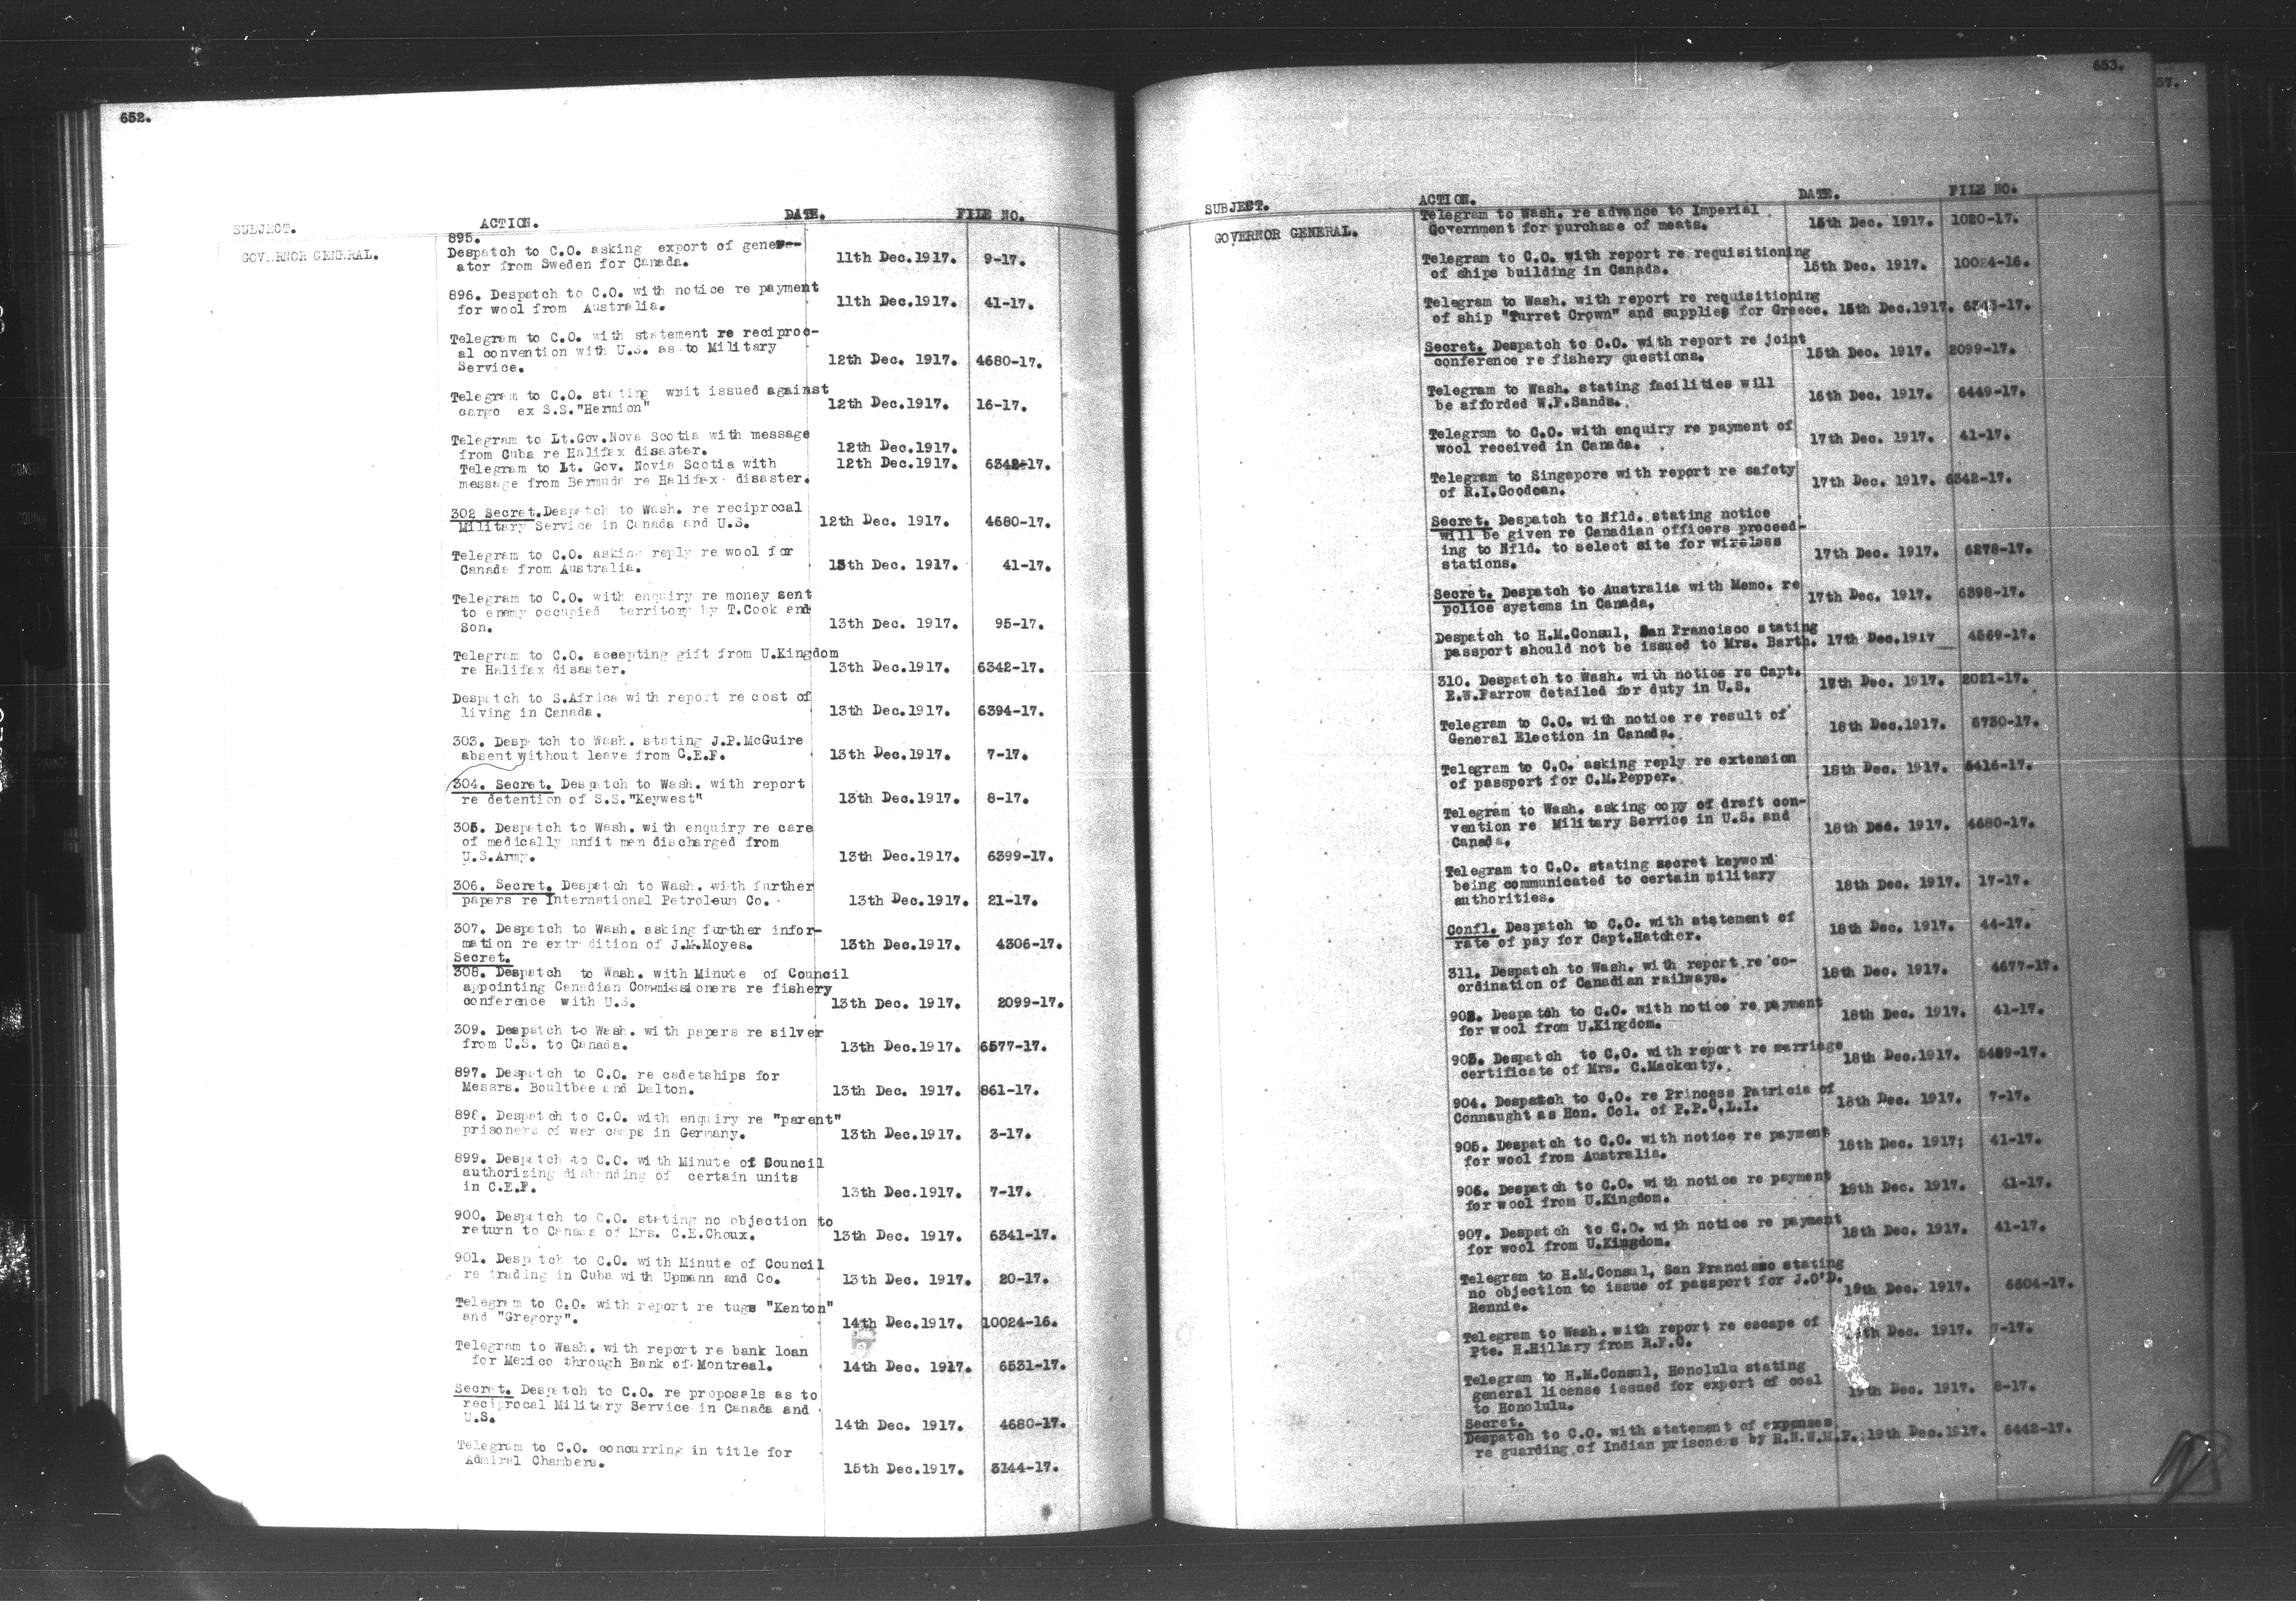 652.
SUBJECT. ACTION. DATE. FILE NO.
GOVERNOR GENERAL.
895.
Despatch to C.O. asking export of gener-
ator from Sweden for Canada. 11th Dec.1917. 9-17.
896. Despatch to C.O. with notice re payment
for wool from Australia. 11th Dec.1917. 41-17.
Telegram to C.O. with statement re reciproc-
al convention with U.S. as to Military
Service. 12th Dec. 1917. 4680-17.
Telegram to C.O. stating writ issued against
cargo ex S.S."Hermion" 12th Dec.1917. 16-17.
Telegram to Lt.Gov.Nova Scotia with message
from Cuba re Halifax disaster. 12th Dec.1917.
Telegram to Lt. Gov. Novia Scotia with 12th Dec.1917. 6342-17.
message from Bermuda re Halifax disaster.
302 Secret.Despatch to Wash. re reciprocal
Military Service in Canada and U.S. 12th Dec. 1917. 4680-17.
Telegram to C.O. asking reply re wool for
Canada from Australia. 13th Dec. 1917. 41-17.
Telegram to C.O. with enquiry re money sent
to enemy occupied territory by T.Cook and
Son. 13th Dec. 1917. 95-17.
Telegram to C.O. accepting gift from U.Kingdom
re Halifax disaster. 13th Dec. 1917. 6342-17.
Despatch to S.Africa with report re cost of
living in Canada. 13th Dec.1917. 6394-17.
303. Despatch to Wash. stating J.P.McGuire
absent without leave from C.E.F. 13th Dec.1917. 7-17.
304. Secret. Despatch to Wash. with report
re detention of S.S."Keywest" 13th Dec.1917. 8-17.
305. Despatch to Wash. with enquiry re care
of medically unfit men discharged from
U.S.Army. 13th Dec.1917. 6399-17.
306. Secret. Despatch to Wash. with further
papers re International Petroleum Co. 13th Dec.1917. 21-17.
307. Despatch to Wash. asking further infor-
mation re extradition of J.M.Moyes. 13th Dec.1917. 4306-17.
Secret.
308. Despatch to Wash. with Minute of Council
appointing Canadian Commissioners re fishery
conference with U.S. 13th Dec. 1917. 2099-17.
309. Despatch to Wash. with papers re silver
from U.S. to Canada. 13th Dec.1917. 6577-17.
897. Despatch to C.O. re cadetships for
Messrs. Boultbee and Dalton. 13th Dec. 1917. 861-17.
898. Despatch to C.O. with enquiry re "parent"
prisoners of war camps in Germany. 13th Dec.1917. 3-17.
899. Despatch to C.O. with Minute of Council
authorizing disbanding of certain units
in C.E.F. 13th Dec.1917. 7-17.
900. Despatch to C.O. stating no objection to
return to Canada of Mrs. C.E.Choux. 13th Dec. 1917. 6341-17.
901. Despatch to C.O. with Minute of Council
re trading in Cuba with Upmann and Co. 13th Dec. 1917. 20-17.
Telegram to C.O. with report re tugs "Kenton"
and "Gregory". 14th Dec.1917. 10024-16.
Telegram to Wash. with report re bank loan
for Mexico through Bank of Montreal. 14th Dec. 1917. 6531-17.
Secret. Despatch to C.O. re proposals as to
reciprocal Military Service in Canada and
U.S. 14th Dec. 1917. 4680-17.
Telegram to C.O. concurring in title for
Admiral Chambers. 15th Dec.1917. 3144-17.
653.
57.
SUBJECT. ACTION. DATE. FILE NO.
GOVERNOR GENERAL.
Telegram to Wash. re advance to Imperial
Government for purchase of meats. 15th Dec. 1917. 1020-17.
Telegram to C.O. with report re requisitioning
of ships building in Canada. 15th Dec. 1917. 10024-16.
Telegram to Wash. with report re requisitioning
of ship "Turret Crown" and supplies for Greece. 15th Dec.1917. 6343-17.
Secret. Despatch to C.O. with report re joint
conference re fishery questions. 15th Dec. 1917. 2099-17.
Telegram to Wash. stating facilities will
be afforded W.F.Sands. 16th Dec. 1917. 6449-17.
Telegram to C.O. with enquiry re payment of
wool received in Canada. 17th Dec. 1917. 41-17.
Telegram to Singapore with report re safety
of R.I.Goodcan. 17th Dec. 1917. 6342-17.
Secret. Despatch to Nfld. stating notice
will be given re Canadian officers proceed-
ing to Nfld. to select site for wireless
stations. 17th Dec. 1917. 6278-17.
Secret. Despatch to Australia with Memo. re
police systems in Canada. 17th Dec. 1917. 6398-17.
Despatch to H.M.Consul, San Francisco stating
passport should not be issued to Mrs. Barth. 17th Dec.1917 4569-17.
310. Despatch to Wash. with notice re Capt.
E.W.Farrow detailed for duty in U.S. 17th Dec. 1917. 2021-17.
Telegram to C.O. with notice re result of
General Election in Canada. 18th Dec.1917. 6730-17.
Telegram to C.O. asking reply re extension
of passport for C.M.Pepper. 18th Dec. 1917. 5416-17.
Telegram to Wash. asking copy of draft con-
vention re Military Service in U.S. and
Canada. 18th Dec. 1917. 4680-17.
Telegram to C.O. stating secret keyword
being communicated to certain military
authorities. 18th Dec. 1917. 17-17.
Confl. Despatch to C.O. with statement of
rate of pay for Capt.Hatcher. 18th Dec. 1917. 44-17.
311. Despatch to Wash. with report re co-
ordination of Canadian railways. 18th Dec. 1917. 4677-17.
902. Despatch to C.O. with notice re payment
for wool from U.Kingdom. 18th Dec. 1917. 41-17.
903. Despatch to C.O. with report re marriage
certificate of Mrs. C.Mackenty. 18th Dec.1917. 5489-17.
904. Despatch to C.O. re Princess Patricia of
Connaught as Hon. Col. of P.P.C.L.I. 18th Dec. 1917. 7-17.
905. Despatch to C.O. with notice re payment
for wool from Australia. 18th Dec. 1917; 41-17.
906. Despatch to C.O. with notice re payment
for wool from U.Kingdom. 18th Dec. 1917. 41-17.
907. Despatch to C.O. with notice re payment
for wool from U.Kingdom. 18th Dec. 1917. 41-17.
Telegram to H.M.Consul, San Francisco stating
no objection to issue of passport for J.O'D.
Rennie. 19th Dec. 1917. 6604-17.
Telegram to Wash. with report re escape of
Pte. H.Hillary from R.F.C. Dec. 1917. 7-17.
Telegram to H.M.Consul, Honolulu stating
general license issued for export of coal
to Honolulu. 19th Dec. 1917. 8-17.
Secret.
Despatch to C.O. with statement of expenses
re guarding of Indian prisoners by R.N.W.M.P. 19th Dec.1917. 6442-17.